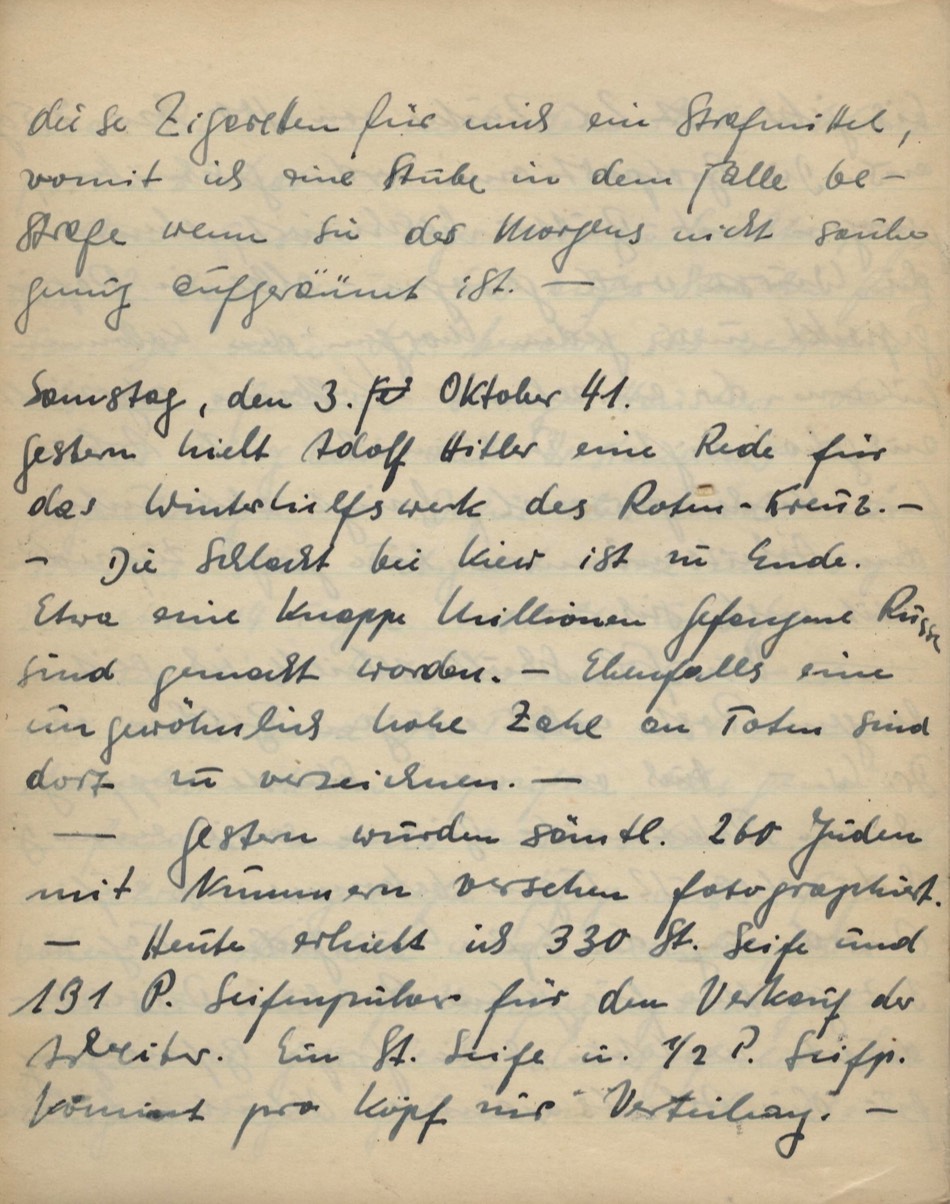 diese Zigaretten für mich ein Strafmittel,
womit ich eine Stube in dem Falle be-
strafe wenn sie des Morgens nicht sauber
genug aufgeräumt ist. —
Samstag, den 3. Oktober 41.
Gestern hielt Adolf Hitler eine Rede für
das Winterhilfswerk des Roten-Kreuz. —
— Die Schlacht bei Kiew ist zu Ende.
Etwa eine knappe Millionen gefangene Russen
sind gemacht worden. — Ebenfalls eine
ungewöhnlich hohe Zahl an Toten sind
dort zu verzeichnen. —
— Gestern wurden sämtl. 260 Juden
mit Nummern versehen fotographiert.
— Heute erhielt ich 330 St. Seife und
191 P. Seifenpulver für den Verkauf der
Arbeiter. Ein St. Seife u. 1/2 P. Seifp.
kommt pro Kopf zur Verteilung. —